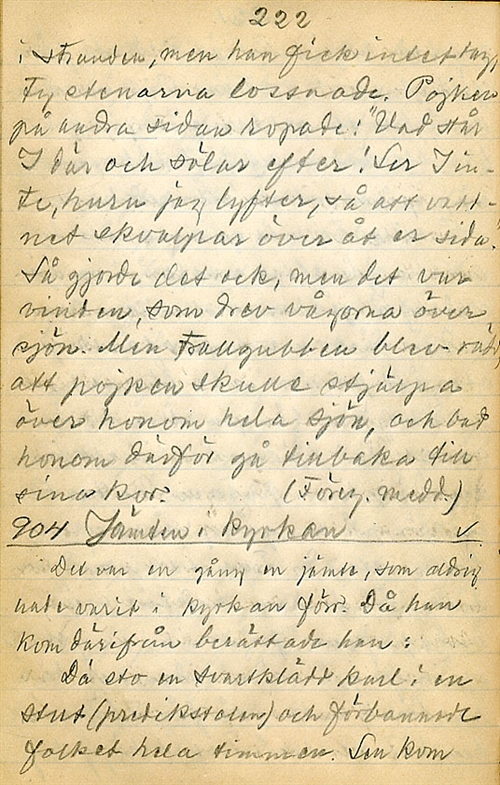 222
i stranden, men han fick intet tag,
ty stenarna lossnade. Pojken
på andra sidan ropade: "Vad står
I där och sölar efter! Ser I in-
te, huru jag lyfter, så att vatt-
net skvalpar över åt er sida."
Så gjorde det ock, men det var
vinden, som drev vågorna över
sjön. Men Trollgubben blev rädd,
att pojken skulle stjälpa
över honom hela sjön, och bad
honom därför gå tillbaka till
sina kor. (Föreg. medd.)
904 Jämten i kyrkan ✓
Det var en gång en jämte, som aldrig
hade varit i kyrkan förr. Då han
kom därifrån berättade han:
Dä sto en svartklädd karl i en
stut (predikstolen) och förbannade
folket hela timmen. Sen kom